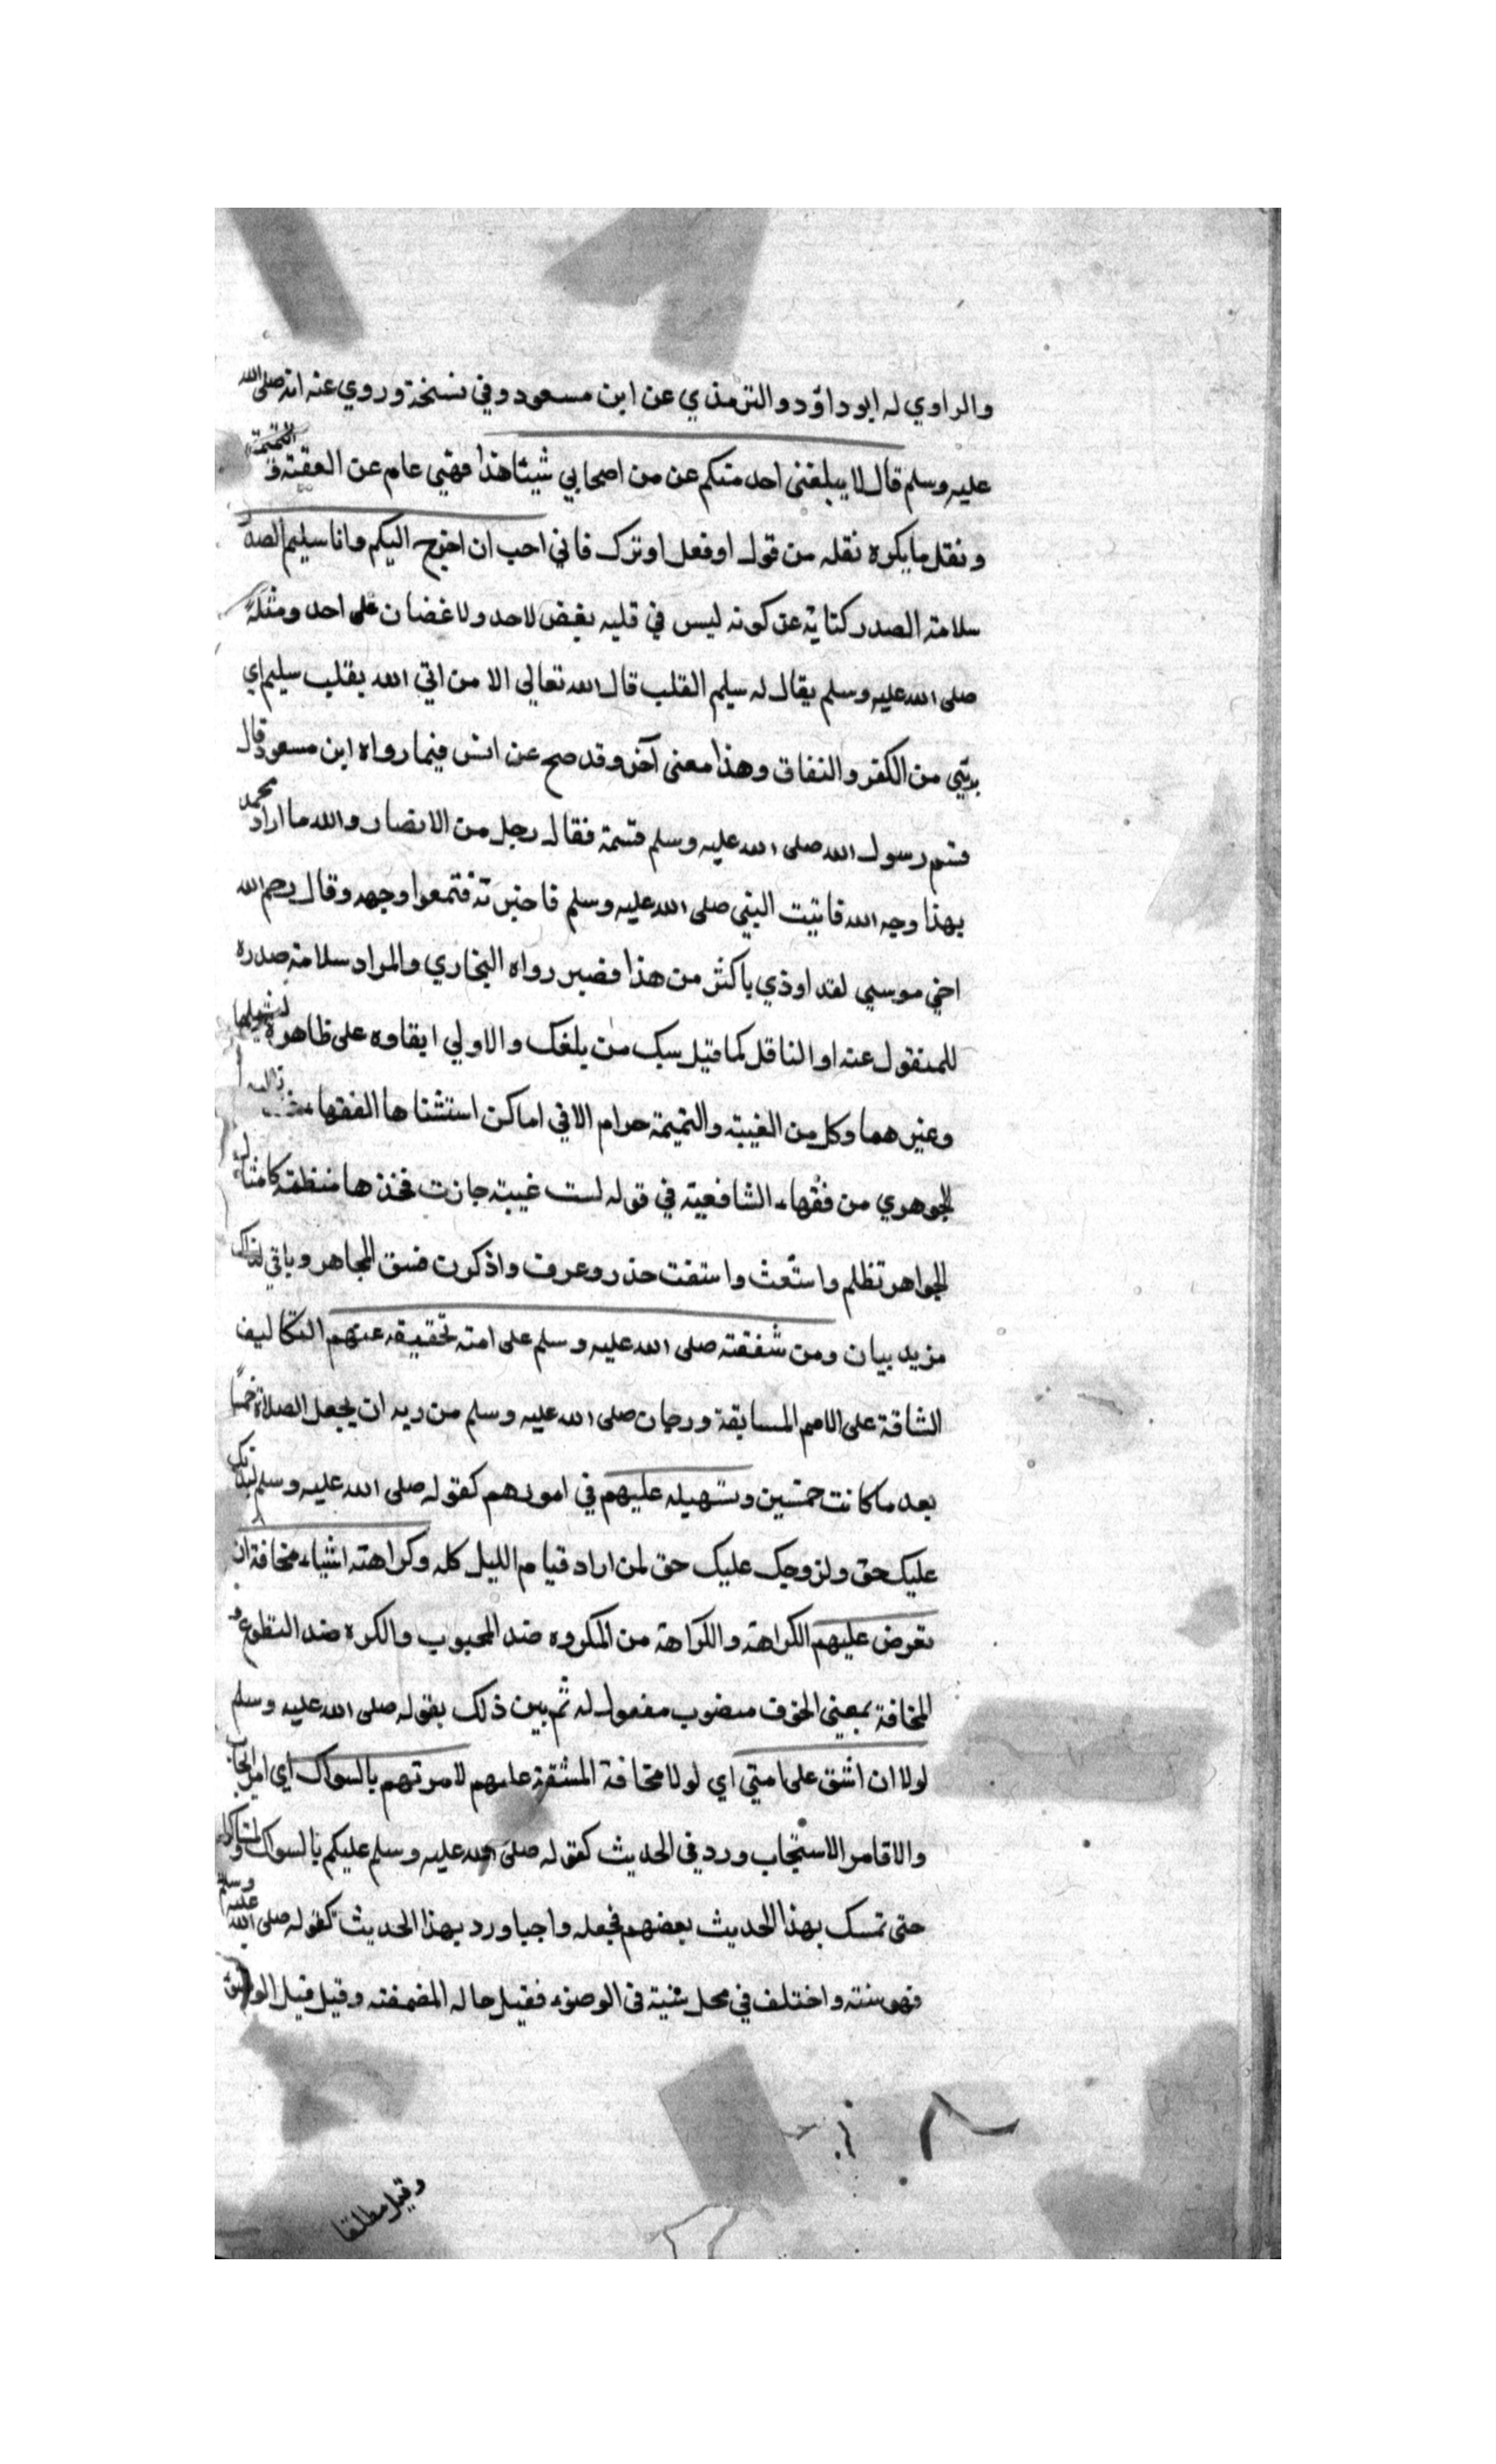 والراوي له ابو داؤد والترمذي عن ابن مسعود وفي نسخة وروي عنه انه صلى الله
عليه وسلم قال لا يبلغني احد منكم عن من اصحابي شيئا هذا فهي عام عن الغيبة و النميمة
ونقل ما يكره نقله من قول او فعل او ترك فاني احب ان اخرج اليكم وانا سليم الصد
سلامة الصدر كناية عن كونه ليس في قلبه بغض لاحد ولا غضبان على احد ومثله
صلى الله عليه وسلم يقال له سليم القلب قال الله تعالي الا من اتي الله بقلب سليم اي
بريي من الكفر والنفاق وهذا معنى آخر وقد صح عن انس فيما رواه ابن مسعود قال
قسم رسول الله صلى الله عليه وسلم قسمة فقال رجل من الانصار والله ما اراد محمد
بهذا وجه الله فاتيت النبي صلى الله عليه وسلم فاخبرته فتمعر وجهه وقال رحم الله
اخي موسي لقد اوذي باكثر من هذا فصبر رواه البخاري والمراد سلامة صدره
للمنقول عنه او الناقل كما قيل سبك من بلغك والاولي ابقاوه على ظاهره
وغيرهما وكل من الغيبة والنميمة حرام الا في اماكن استثناها الفقهاء
الجوهري من فقهاء الشافعية في قوله لست غيبة جازت فخذها منظمة كامثال
الجواهر تظلم واستغث واستفت حذر وعرف واذكرن فسق المجاهر وياتي لذلك
مزيد بيان ومن شفقته صلى الله عليه وسلم على امته تخفيفه عنهم التكاليف
الشاقة على الامم المسابقة ورجان صلى الله عليه وسلم من ربه ان يجعل الصلاة خمسا
بعد ما كانت خمسين وتسهيله عليهم في امورهم كقوله صلى الله عليه وسلم لبدنك
عليك حق ولزوجك عليك حق لمن اراد قيام الليل كله وكراهته اشياء مخافة ان
تعرض عليهم الكراهة والكراهة من المكروه ضد المحبوب والكره ضد التطوع و
المخافة بمعنى الخوف منصوب مفعول له ثم بين ذلك بقوله صلى الله عليه وسلم
لولا ان اشق على امتي اي لولا مخافة المشقة عليهم لامرتهم بالسواك اي امر ايجاب
والا فامر الاستحباب ورد في الحديث كقوله صلى الله عليه وسلم عليكم بالسواك
حتى تمسك بهذا الحديث بعضهم فجعله واجبا ورد بهذا الحديث كقوله صلى الله عليه وسلم
فهو سنة واختلف في محل سنية في الوضوء فقيل حاله المضمضة وقيل قبل الوضوء
وقيل مطلقا